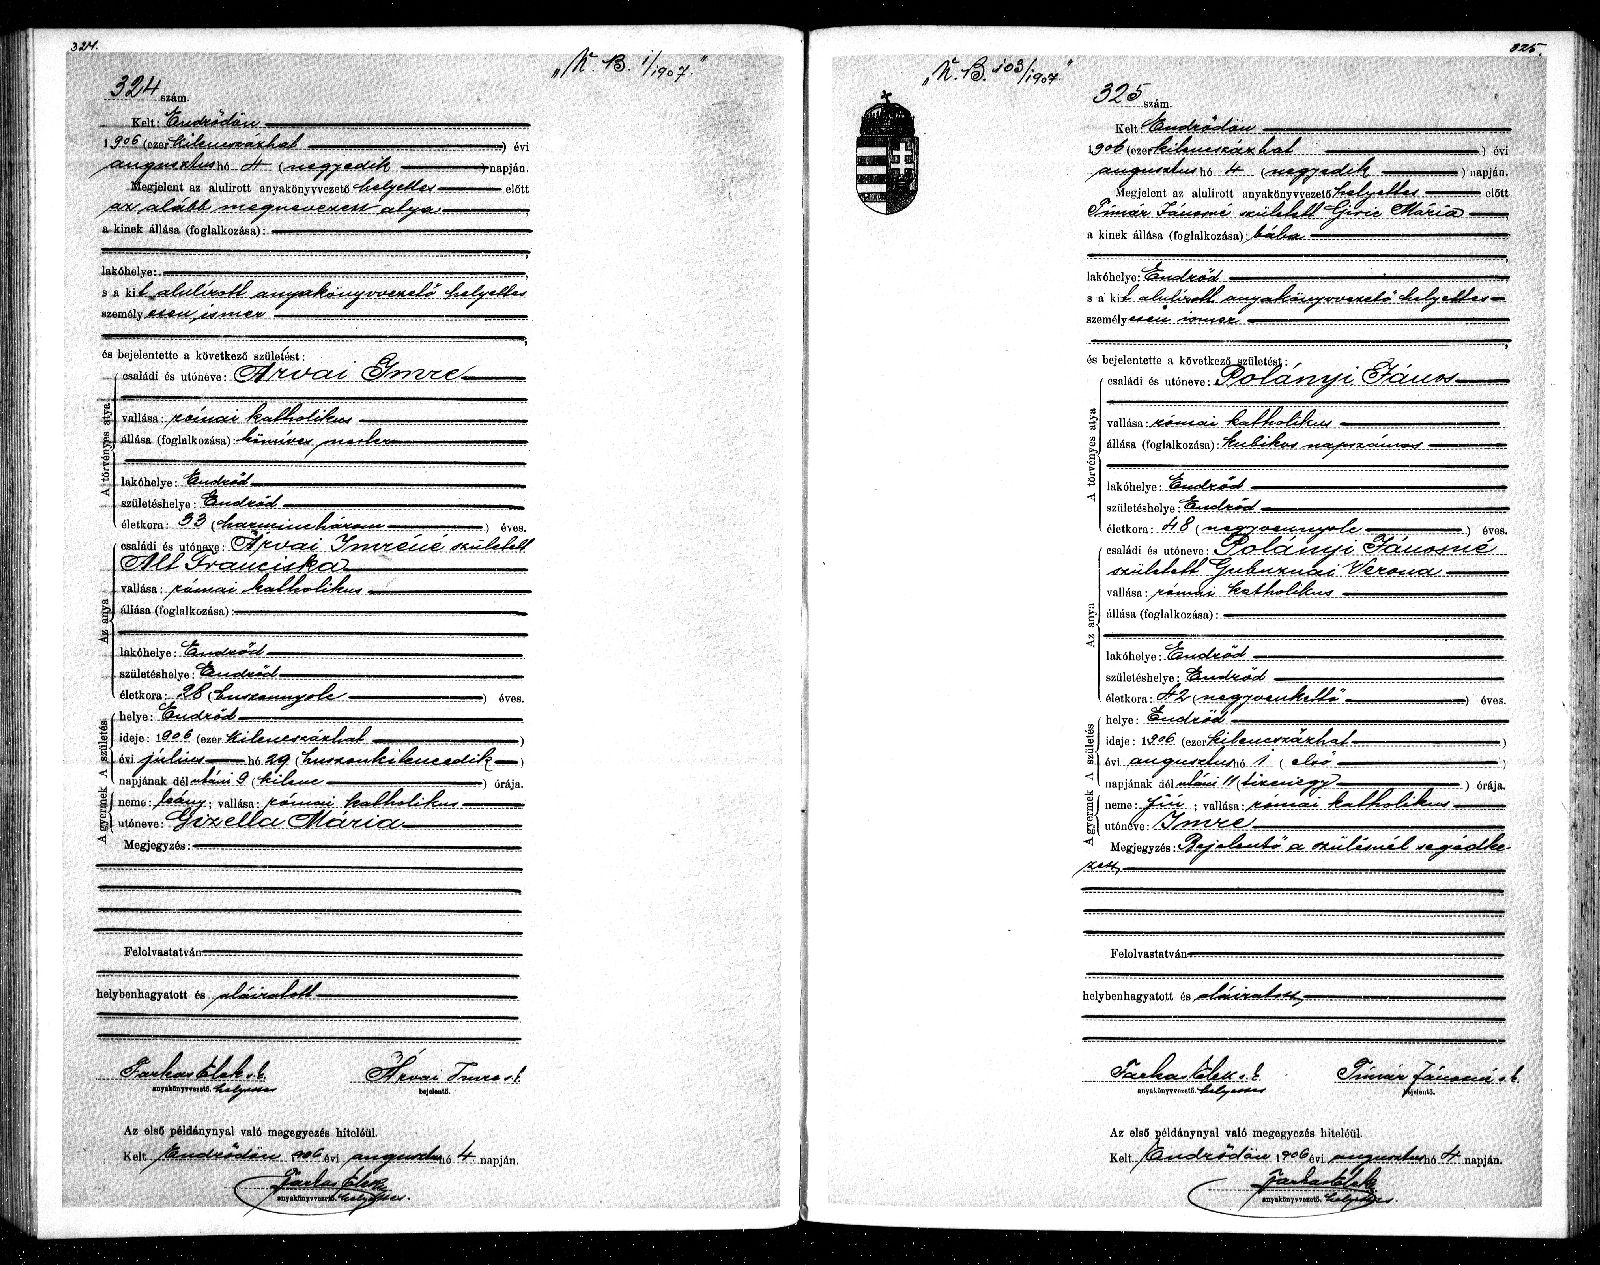 324.
„N. B. 1/1907."
324 szám.
Kelt: Endrődön
1906 (ezer kilenczszázhat) évi
augusztus hó 4 (negyedik) napján.
Megjelent az alulirott anyakönyvvezető helyettes előtt
az alább megnevezett atya
a kinek állása (foglalkozása):
lakóhelye:
s a kit alulírott anyakönyvvezető helyettes
személyesen ismer
és bejelentette a következő születést:
A törvényes atya
családi és utóneve: Árvai Imre
vallása: római katholikus
állása (foglalkozása): kőmíves mester
lakóhelye: Endrőd
születéshelye: Endrőd
életkora: 33 (harminchárom) éves.
Az anya
családi és utóneve: Árvai Imréné született
Alt Franciska
vallása: római katholikus
állása (foglalkozása):
lakóhelye: Endrőd
születéshelye: Endrőd
életkora: 28 (huszonnyolc) éves.
A születés
helye: Endrőd
ideje: 1906 (ezer kilenczszázhat)
évi július hó 29 (huszonkilencedik)
napjának délutáni 9 (kilenc) órája.
A gyermek
neme: leány; vallása: római katholikus
utóneve: Gizella Mária
Megjegyzés:
Felolvastatván
helybenhagyatott és aláiratott
Farkas Elek s. k. Árvai Imre s. k.
anyakönyvvezető helyettes bejelentő.
Az első példánynyal való megegyezés hiteléül.
Kelt Endrődön 1906 évi augusztus hó 4 napján.
Farkas Elek
anyakönyvvezető helyettes.
325.
„N. B. 103/1907"
325 szám.
Kelt: Endrődön
1906 (ezer kilenczszázhat) évi
augusztus hó 4 (negyedik) napján.
Megjelent az alulirott anyakönyvvezető helyettes előtt
Tímár Jánosné született Giric Mária
a kinek állása (foglalkozása): bába
lakóhelye: Endrőd
s a kit alulírott anyakönyvvezető helyettes
személyesen ismer
és bejelentette a következő születést:
A törvényes atya
családi és utóneve: Polányi János
vallása: római katholikus
állása (foglalkozása): kubikos napszámos
lakóhelye: Endrőd
születéshelye: Endrőd
életkora: 48 (negyvennyolc) éves.
Az anya
családi és utóneve: Polányi Jánosné
született Gubuznai Verona
vallása: római katholikus
állása (foglalkozása):
lakóhelye: Endrőd
születéshelye: Endrőd
életkora: 42 (negyvenkettő) éves.
A születés
helye: Endrőd
ideje: 1906 (ezer kilenczszázhat)
évi augusztus hó 1 (első)
napjának délutáni 11 (tizenegy) órája.
A gyermek
neme: fiú; vallása: római katholikus
utóneve: Imre
Megjegyzés: Bejelentő a szülésnél segédke-
zett
Felolvastatván
helybenhagyatott és aláiratott
Farkas Elek s. k. Tímár Jánosné s. k.
anyakönyvvezető helyettes bejelentő.
Az első példánynyal való megegyezés hiteléül.
Kelt Endrődön 1906 évi augusztus hó 4 napján.
Farkas Elek
anyakönyvvezető helyettes.